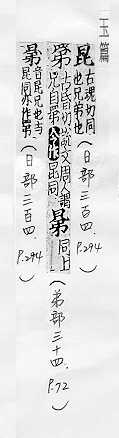 玉篇
昆 古魂切同也兄弟也（日部三百四．P.294）
古昏切說文周人謂兄曰今作昆同 同上（弟部三十四．P.72）
音昆兄也与昆同亦作（日部三百四．P.294）